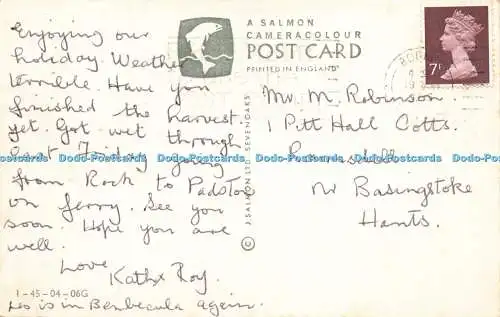 Enjoying our
holiday. Weather
terrible. Have you
finished the harvest
yet. Got wet through
last Friday going
from Rock to Padstow
on ferry. See you
soon. Hope you are
well.
Love
Kath & Roy.
1-45-04-06G
Les is in Benbecula again.
A SALMON
CAMERACOLOUR
POST CARD
PRINTED IN ENGLAND
© J. SALMON LTD. SEVENOAKS
7P
Mr M. Robinson.
1 Pitt Hall Cotts.
Ramsdell
Nr Basingstoke
Hants.
Dodo-Postcards Dodo-Postcards Dodo-Postcards Dodo-Postcards Dodo-Postcards Dodo-Postcards